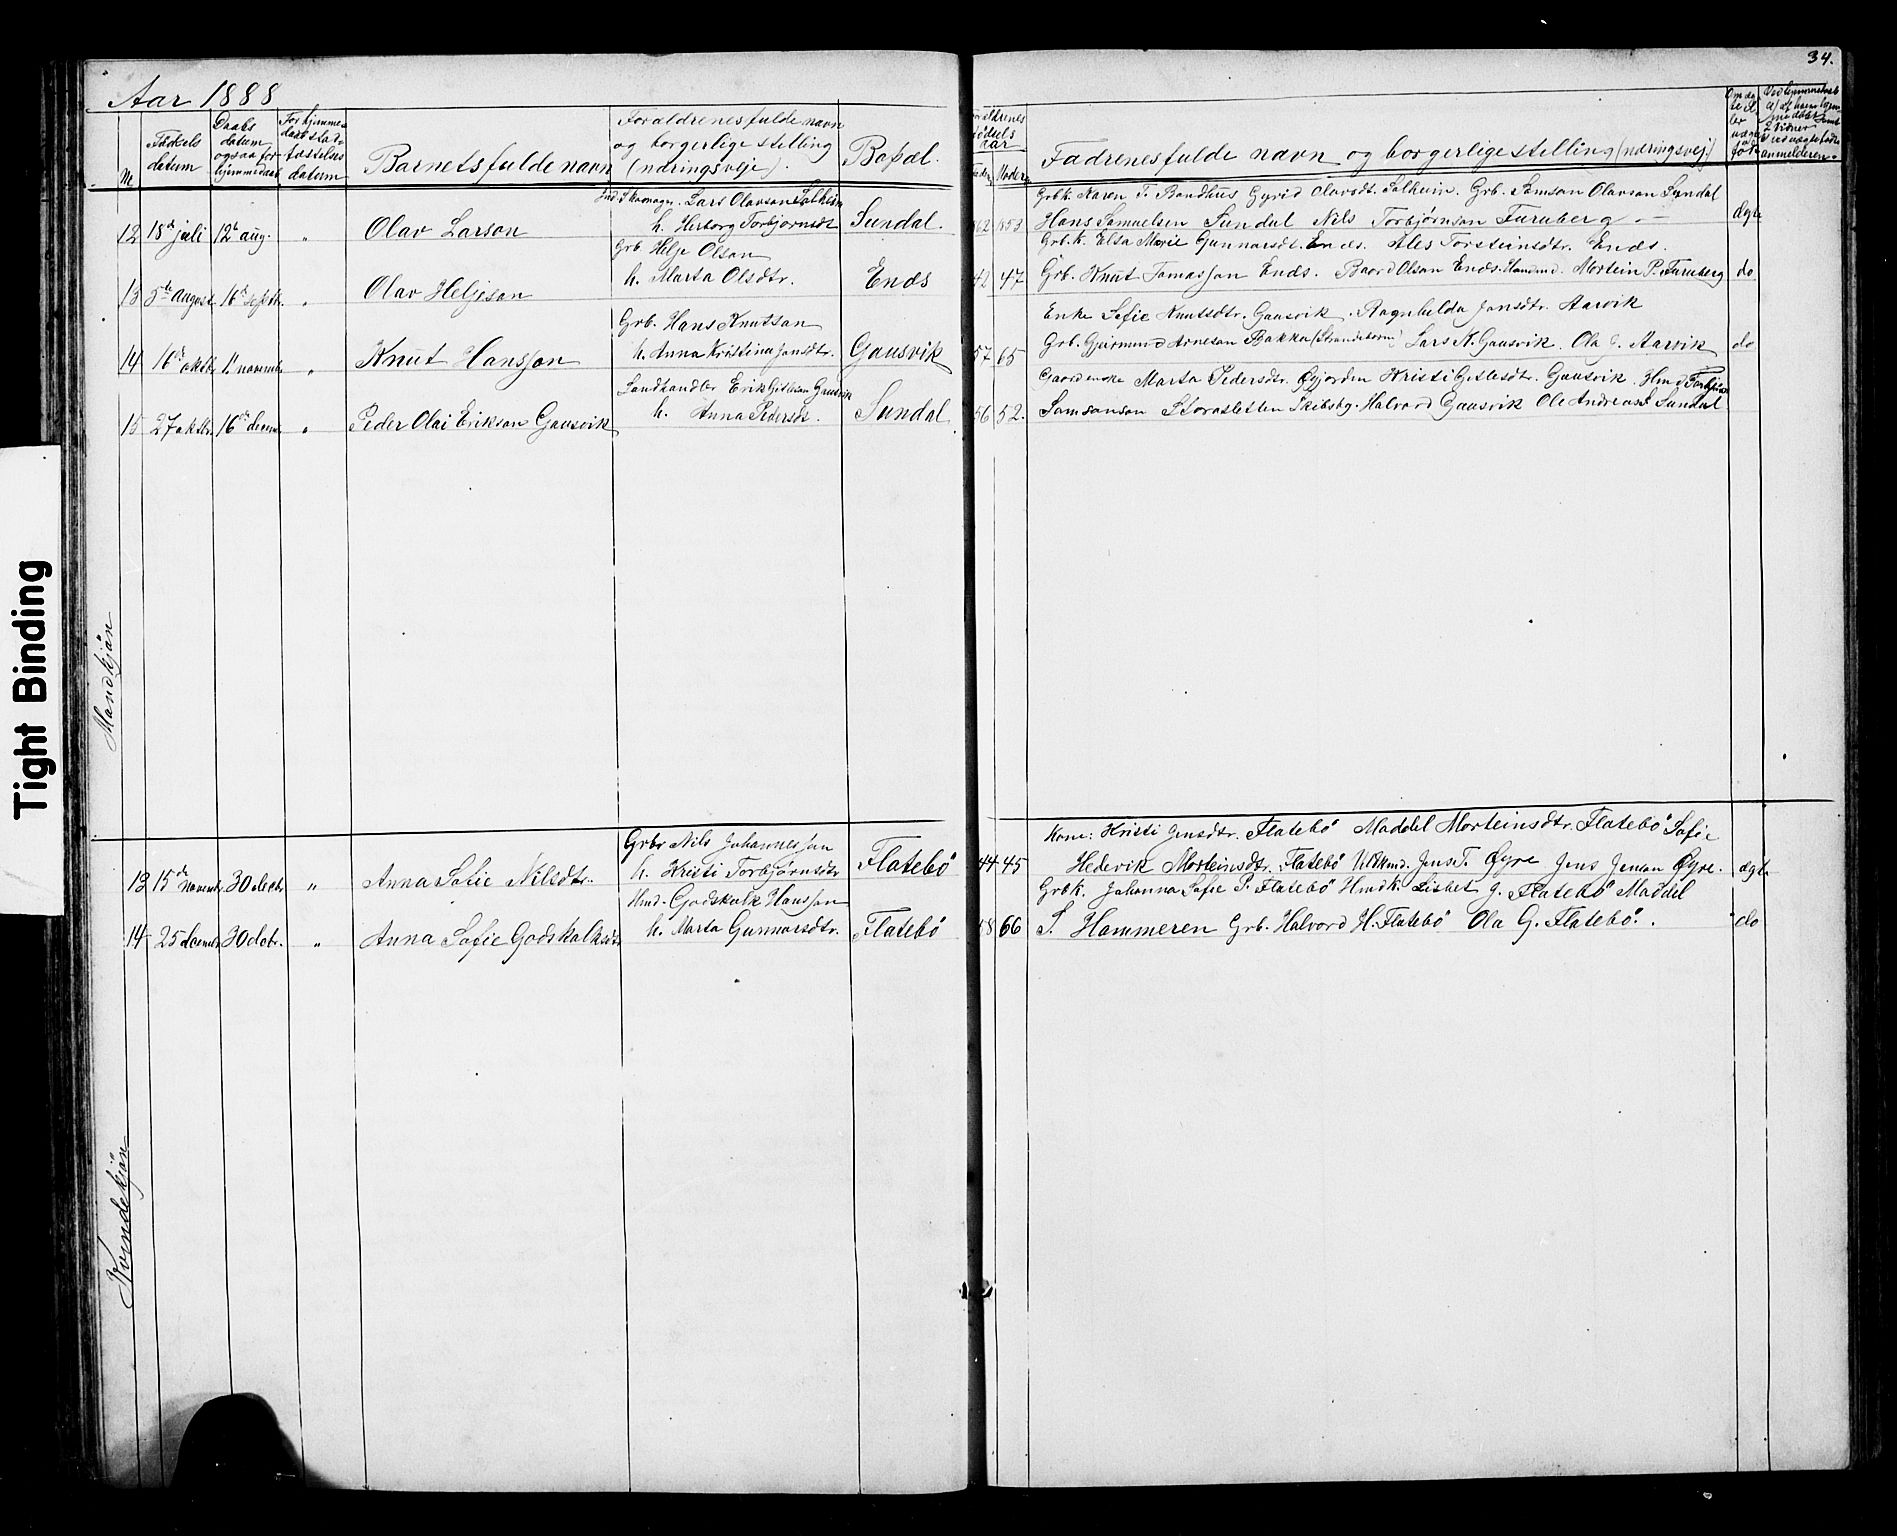 34.
Aar 1888
№
Fødsels datum
Daabs datum ogsaa for hjemmedaab
For hjemmedaab stadfæstelses datum
Barnets fulde navn
Forældrenes fulde navn og borgerlige stilling (næringsveje)
Bopæl.
Forældrenes fødsels aar
Faders Moders
Fadrenes fulde navn og borgerlige stilling (næringsvej)
Mandkjøn
12 18de juli 12te aug. " Olav Larson
Lars Olavson Solheim
h. Herborg Torbjørnsdt. Sundal.
62 1853
Grbk. Karen T. Bondhus Gyrid Olavsdt. Solheim. Grb. Samson Olavson Sundal
Hans Samuelsen Sundal Nils Torbjørnson Furuberg. ægte
13 5te august. 16de septbr. " Olav Heljeson
Grb. Helje Olson
h. Marta Olsdtr. Ends
42 47
Grb.k. Elsa Marie Gunnarsdt. Ends. Ales Torsteinsdtr. Ends.
Grb. Knut Tomasson Ends. Baord Olson Ends. Mortein P. Furuberg do
14 16de oktbr. 11 novembr. " Knut Hansson
Grb. Hans Knutson
h. Anna Kristina Jonsdtr. Gausvik
57 65
Enke Sofie Knutsdtr. Gausvik. Ragnhilda Jonsdtr. Aarvik
Grb. Gjurmund Arneson Bakka (Strandebarm) Lars K. Gausvik. Ola J. Aarvik do
15 27 oktbr. 16de decem. " Peder Olai Erikson Gausvik
Landhandler Erik Gitleson Gausvik
h. Anna Pedersdt. Sundal.
56 52.
Marta Pedersdtr. Øyjorden Kristi Gitlesdtr. Gausvik. Hmd Torbjørn
Samsonson Storasletten Skibsbg. Halvard Gausvik Ole Andreas Sundal
Kvindekjøn
13 15de Novembr 30 decbr " Anna Sofie Nilsdtr.
Grbr Nils Johannesson
h. Kristi Torbjørnsdtr Flatebö
44 45
Kone: Kristi Jensdtr. Flatebö Maddel Morteinsdtr. Flatebö Sofie
Hedevik Morteinsdtr. Flatebö Ulldkmd. Jens T. Øyre Jens Jenson Øyre. ægt.
14 25 decembr 30 decbr. " Anna Sofie Godskalksdtr
Hmd. Godskalk Hansson
h. Marta Gunnarsdtr. Flatebö
58 66
Grbk. Johanna Sofie P. Flatebö Hmdk. Lisbet G. Flatebö Maddel
S. Hammeren Grb. Halvord H. Flatebö Ola G. Flatebö. do
Tight Binding